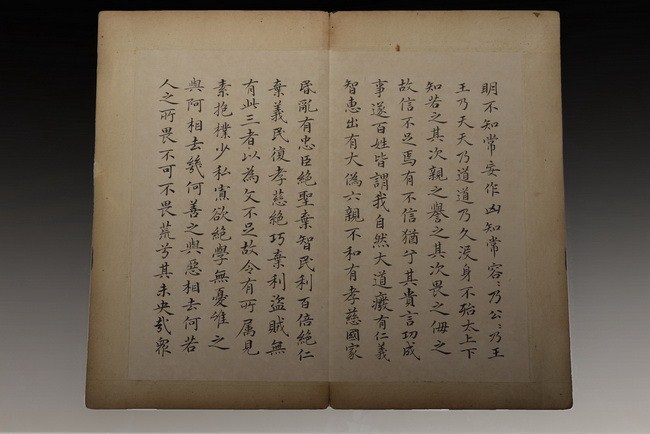 明不知常妄作凶知常容〻乃公〻乃王
王乃天天乃道道乃久没身不殆太上下
知若之其次親之譽之其次畏之侮之
故信不足焉有不信猶兮其貴言功成
事遂百姓皆謂我自然大道癈有仁義
智惠出有大偽六親不和有孝慈國家
昏亂有忠臣絕聖棄智民利百倍絕仁
棄義民復孝慈絕巧棄利盜賊無
有此三者以為文不足故令有所属見
素抱樸少私寡欲絕學無憂唯之
與阿相去幾何善之與惡相去何若
人之所畏不可不畏荒兮其未央哉衆